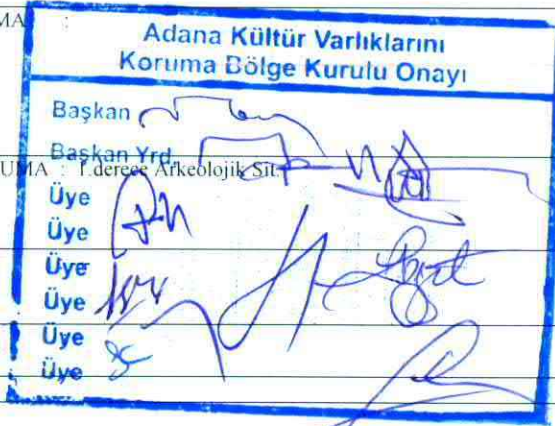 MA :
Adana Kültür Varlıklarını
Koruma Bölge Kurulu Onayı
Başkan
Başkan Yrd.
UMA : I.derece Arkeolojik Sit.
Üye
Üye
Üye
Üye
Üye
Üye